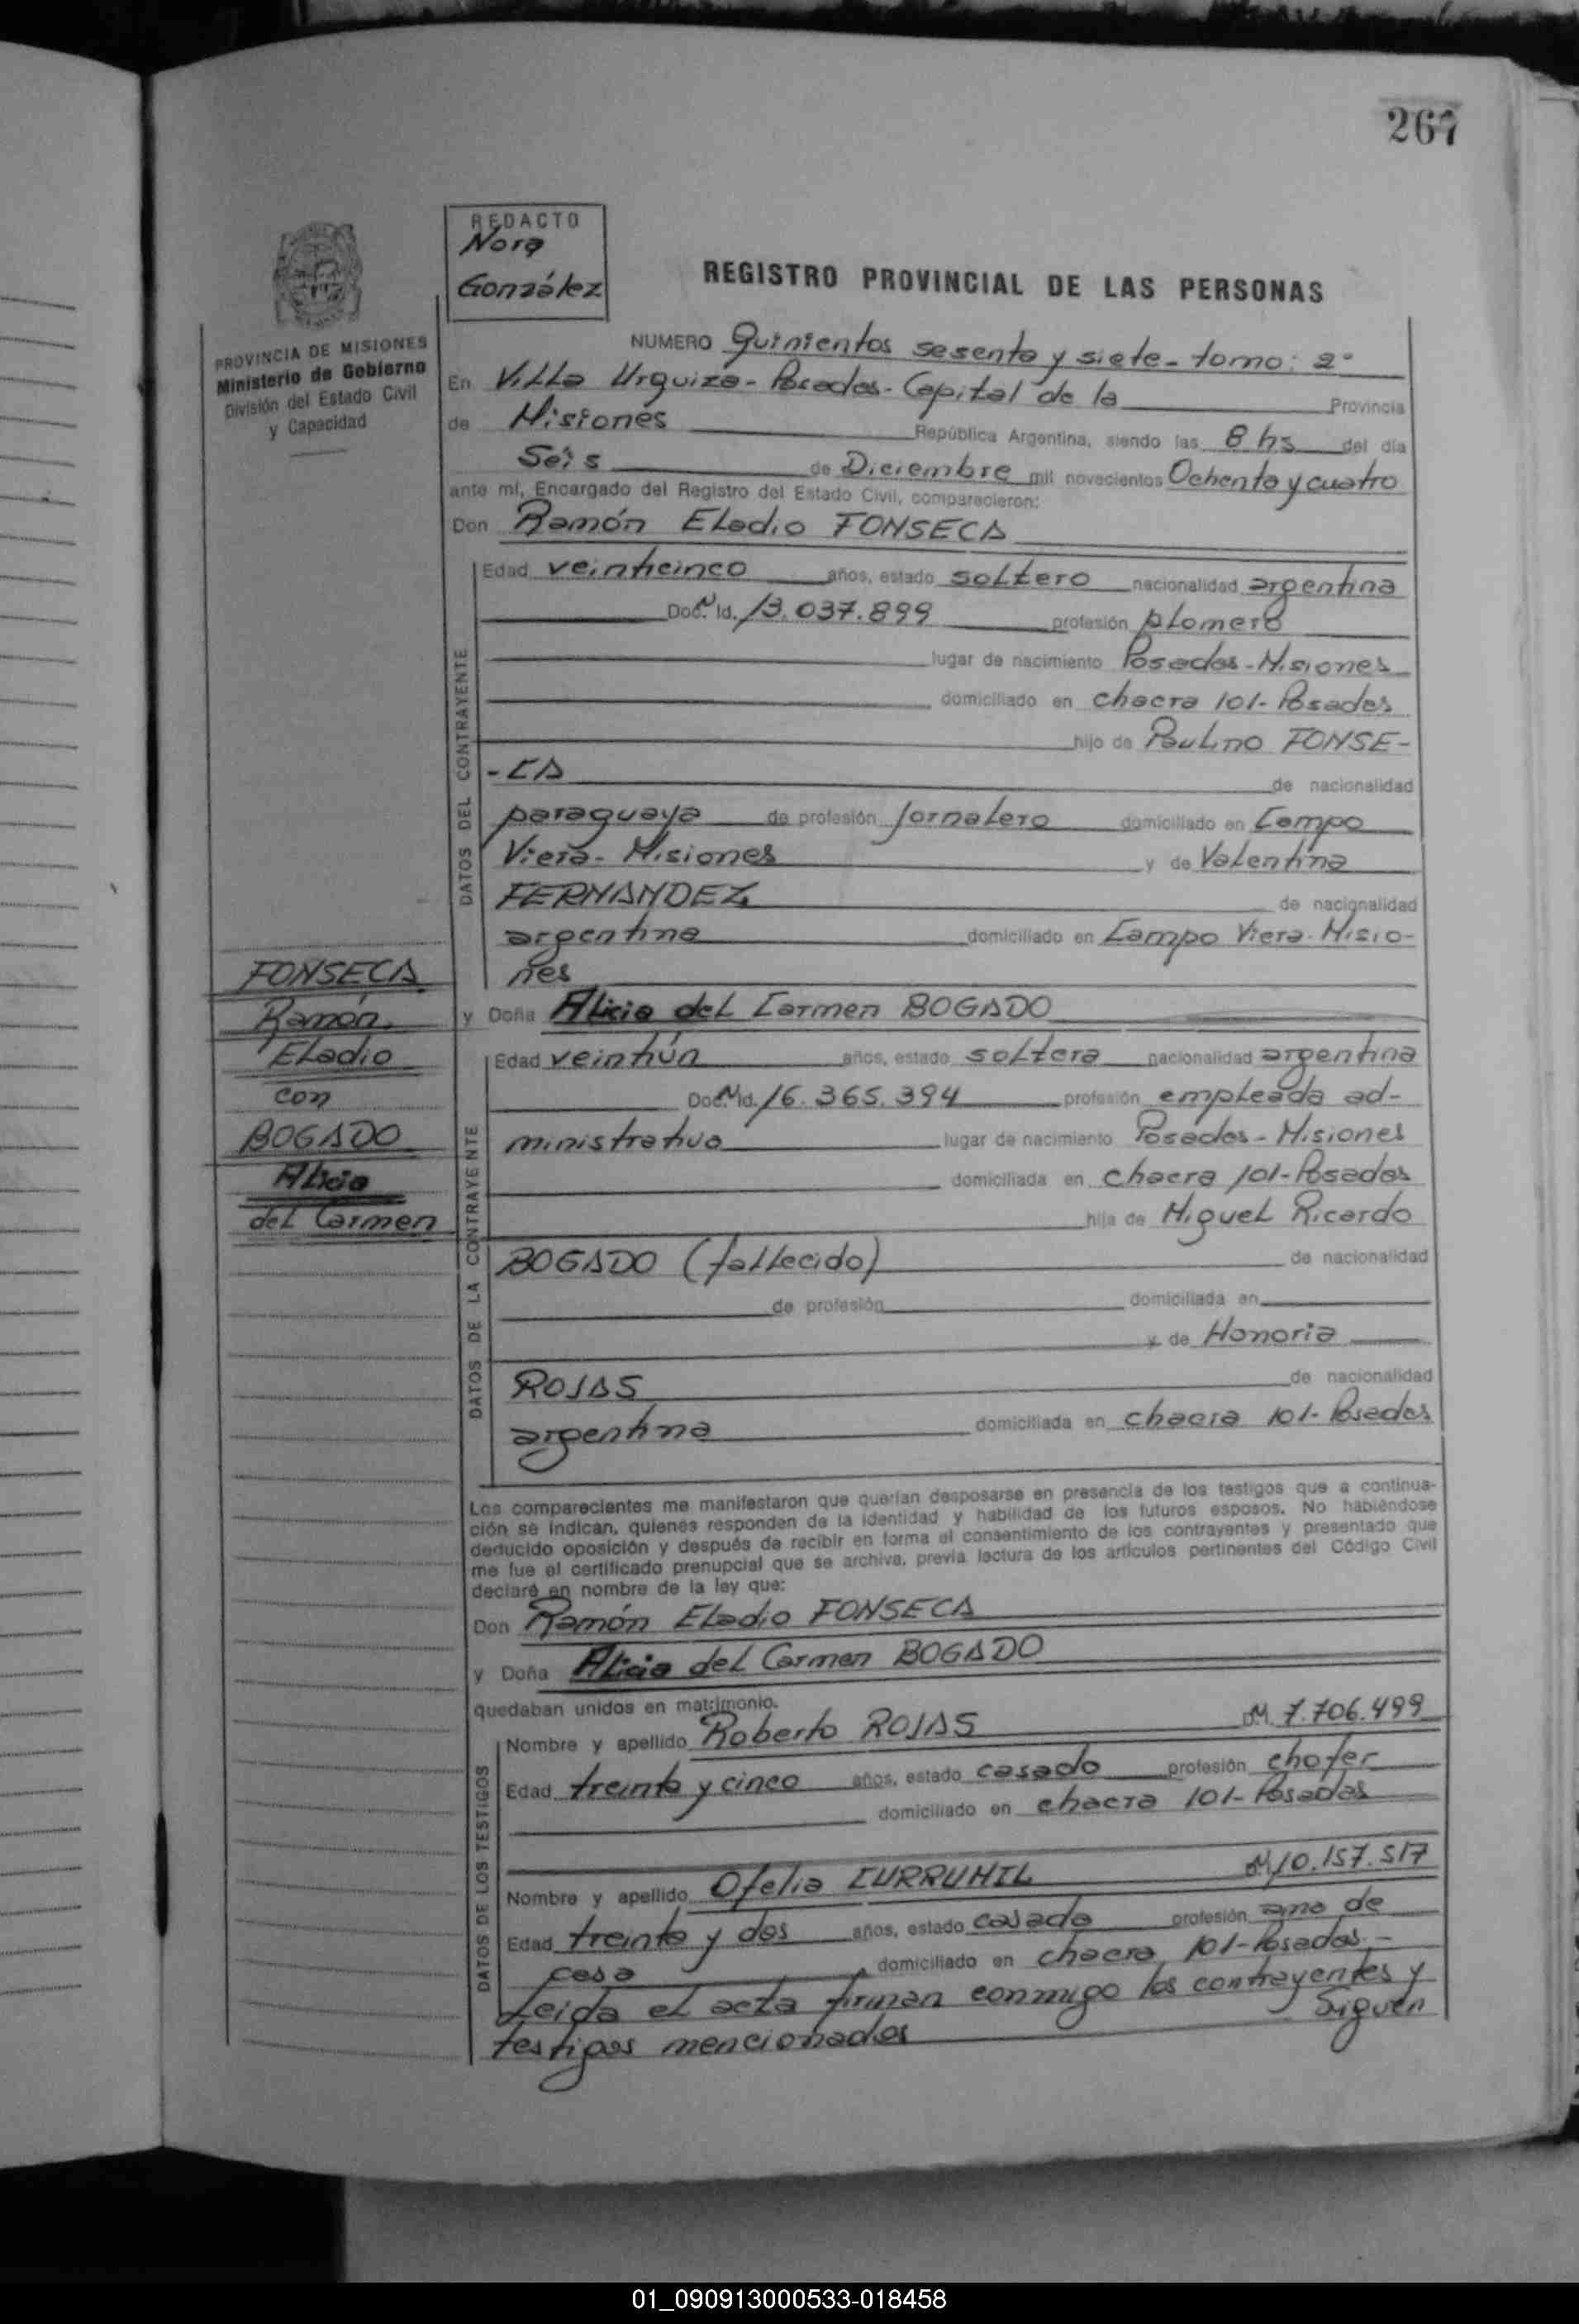 267
REDACTO
Nora
González
REGISTRO PROVINCIAL DE LAS PERSONAS
PROVINCIA DE MISIONES
Ministerio de Gobierno
División del Estado Civil
y Capacidad
NUMERO Quinientos sesenta y siete - tomo: 2º
En Villa Urquiza - Posadas - Capital de la Provincia
de Misiones República Argentina, siendo las 8 hs del día
Seis de Diciembre mil novecientos Ochenta y cuatro
ante mí, Encargado del Registro del Estado Civil, comparecieron:
Don Ramón Eladio FONSECA
DATOS DEL CONTRAYENTE
Edad veinticinco años, estado soltero nacionalidad argentina
Doc. Id. 13.037.899 profesión plomero
lugar de nacimiento Posadas - Misiones
domiciliado en chacra 101 - Posadas
hijo de Paulino FONSE-
-CA de nacionalidad
paraguaya de profesión Jornalero domiciliado en Campo
Viera - Misiones y de Valentina
FERNANDEZ de nacionalidad
argentina domiciliado en Campo Viera - Misio-
nes
FONSECA
Ramón
Eladio
con
BOGADO
Alicia
del Carmen
y Doña Alicia del Carmen BOGADO
DATOS DE LA CONTRAYENTE
Edad veintiún años, estado soltera nacionalidad argentina
Doc. Id. 16.365.394 profesión empleada ad-
ministrativa lugar de nacimiento Posadas - Misiones
domiciliada en chacra 101 - Posadas
hija de Miguel Ricardo
BOGADO (fallecido) de nacionalidad
de profesión domiciliada en
y de Honoria
ROJAS de nacionalidad
argentina domiciliada en chacra 101 - Posadas
Los comparecientes me manifestaron que querían desposarse en presencia de los testigos que a continua-
ción se indican, quienes responden de la identidad y habilidad de los futuros esposos. No habiéndose
deducido oposición y después de recibir en forma el consentimiento de los contrayentes y presentado que
me fue el certificado prenupcial que se archiva, previa lectura de los artículos pertinentes del Código Civil
declaré en nombre de la ley que:
Don Ramón Eladio FONSECA
y Doña Alicia del Carmen BOGADO
quedaban unidos en matrimonio.
DATOS DE LOS TESTIGOS
Nombre y apellido Roberto ROJAS 7.706.499
Edad treinta y cinco años, estado casado profesión chofer
domiciliado en chacra 101 - Posadas
Nombre y apellido Ofelia CURRUHIL 10.157.517
Edad treinta y dos años, estado casada profesión ama de
casa domiciliado en chacra 101 - Posadas -
Leida el acta firman conmigo los contrayentes y
testigos mencionados Siguen
01_090913000533-018458